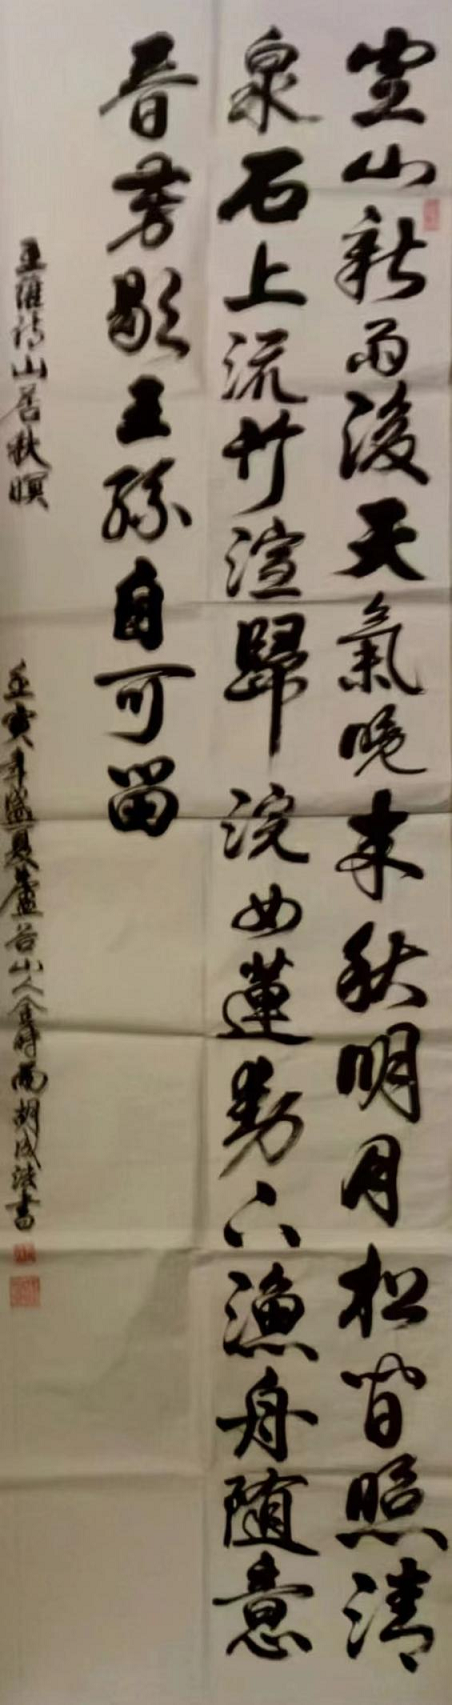 空山新雨後天氣晚来秋明月松间照清
泉石上流竹渲歸浣女蓮動下漁舟隨意
春芳歇王孫自可留
王維詩山居秋暝
壬寅年盛夏廬谷山人金時雨胡成法書